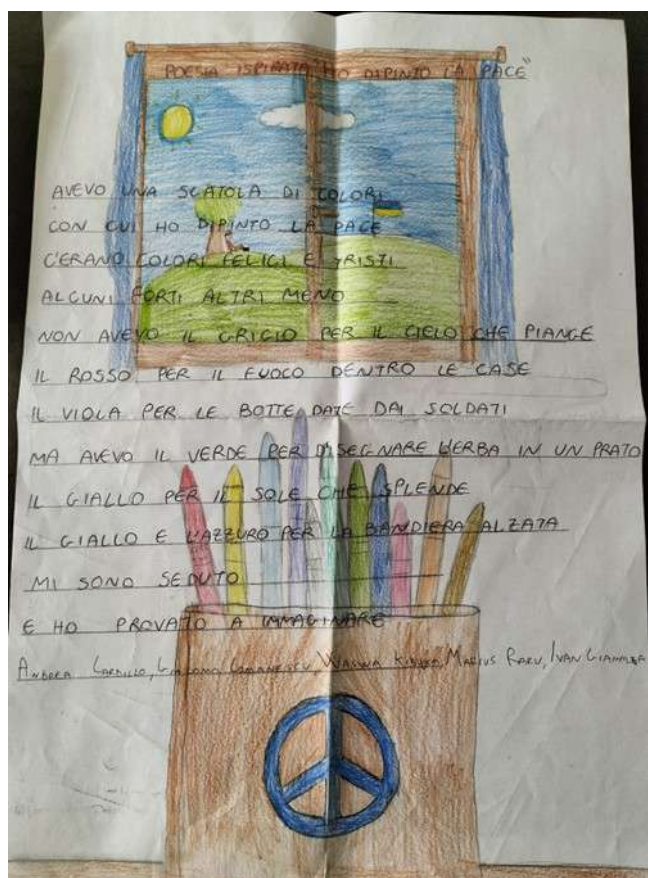 POESIA ISPIRATA "HO DIPINTO LA PACE"
AVEVO UNA SCATOLA DI COLORI
CON CUI HO DIPINTO LA PACE
C'ERANO COLORI FELICI E TRISTI
ALCUNI FORTI ALTRI MENO
NON AVEVO IL GRIGIO PER IL CIELO CHE PIANGE
IL ROSSO PER IL FUOCO DENTRO LE CASE
IL VIOLA PER LE BOTTE DATE DAI SOLDATI
MA AVEVO IL VERDE PER DISEGNARE L'ERBA IN UN PRATO
IL GIALLO PER IL SOLE CHE SPLENDE
IL GIALLO E L'AZZURO PER LA BANDIERA ALZATA
MI SONO SEDUTO
E HO PROVATO A IMMAGINARE
ANDREA, MARIUS, IVAN